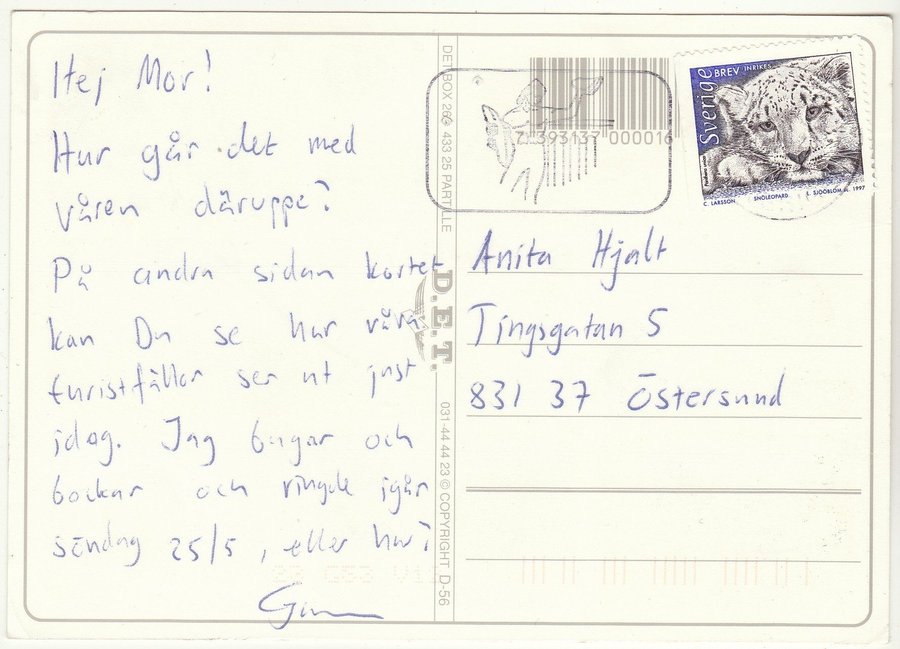 Hej Mor!
Hur går det med
våren däruppe?
På andra sidan kortet
kan Du se hur våra
turistfällor ser ut just
idag. Jag bugar och
bockar och ringde igår
söndag 25/5, eller hur?
DET BOX 266 433 25 PARTILLE
D.E.T.
031-44 44 23 © COPYRIGHT D-56
7 393137 000016
Sverige
BREV INRIKES
C. LARSSON SNÖLEOPARD L. SJÖÖBLOM sc. 1997
Anita Hjalt
Tingsgatan 5
831 37 Östersund